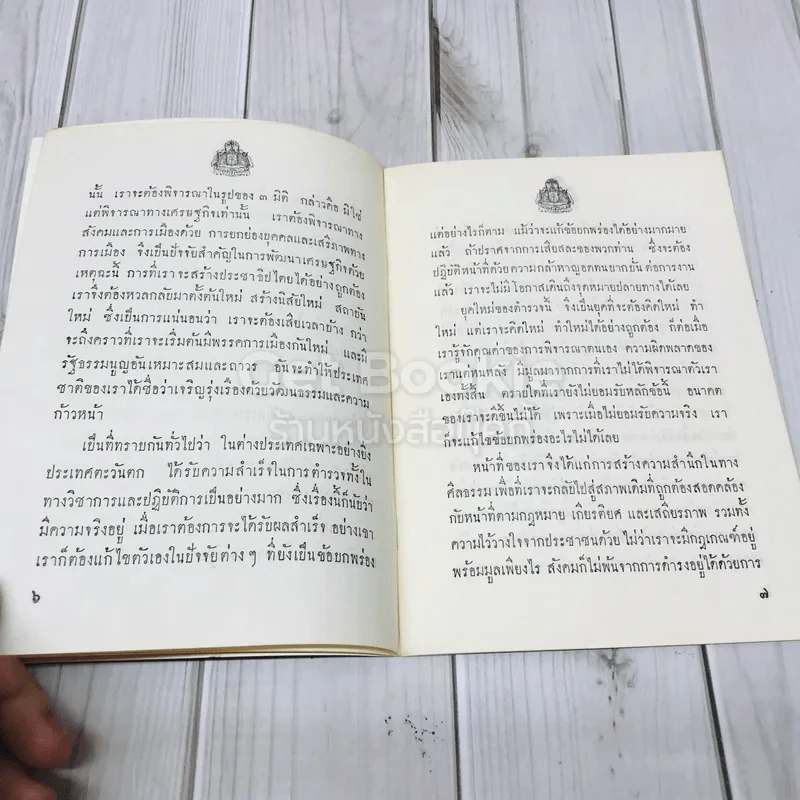 นั้น เราจะต้องพิจารณาในรูปของ ๓ มิติ กล่าวคือ มิใช่
แต่พิจารณาทางเศรษฐกิจเท่านั้น เราต้องพิจารณาทาง
สังคมและการเมืองด้วย การยกย่องบุคคลและเสรีภาพทาง
การเมือง จึงเป็นปัจจัยสำคัญในการพัฒนาเศรษฐกิจด้วย
เหตุฉะนี้ การที่เราจะสร้างประชาธิปไตยได้อย่างถูกต้อง
เราจึงต้องหวลกลับมาตั้งต้นใหม่ สร้างนิสัยใหม่ สถาบัน
ใหม่ ซึ่งเป็นการแน่นอนว่า เราจะต้องเสียเวลาบ้าง กว่า
จะถึงคราวที่เราจะเริ่มต้นมีพรรคการเมืองกันใหม่ และมี
รัฐธรรมนูญอันเหมาะสมและถาวร อันจะทำให้ประเทศ
ชาติของเราได้ชื่อว่าเจริญรุ่งเรืองด้วยวัฒนธรรมและความ
ก้าวหน้า
เป็นที่ทราบกันทั่วไปว่า ในต่างประเทศเฉพาะอย่างยิ่ง
ประเทศตะวันตก ได้รับความสำเร็จในการตำรวจทั้งใน
ทางวิชาการและปฏิบัติการเป็นอย่างมาก ซึ่งเรื่องนี้ก็นับว่า
มีความจริงอยู่ เมื่อเราต้องการจะได้รับผลสำเร็จ อย่างเขา
เราก็ต้องแก้ไขตัวเองในปัจจัยต่าง ๆ ที่ยังเป็นข้อบกพร่อง
๖
แต่อย่างไรก็ตาม แม้ว่าจะแก้ข้อบกพร่องได้อย่างมากมาย
แล้ว ถ้าปราศจากการเสียสละของพวกท่าน ซึ่งจะต้อง
ปฏิบัติหน้าที่ด้วยความกล้าหาญอดทนบากบั่น ต่อการงาน
แล้ว เราจะไม่มีโอกาสเดินถึงจุดหมายปลายทางได้เลย
ยุคใหม่ของตำรวจนี้ จึงเป็นยุคที่จะต้องคิดใหม่ ทำ
ใหม่ แต่เราจะคิดใหม่ ทำใหม่ได้อย่างถูกต้อง ก็ต่อเมื่อ
เรารู้จักคุณค่าของการพิจารณาตนเอง ความผิดพลาดของ
เราแต่หนหลัง มีมูลมาจากการที่เราไม่ได้พิจารณาตัวเรา
เองทั้งสิ้น ตราบใดที่เรายังไม่ยอมรับหลักข้อนี้ อนาคต
ของเราจะดีขึ้นไม่ได้ เพราะเมื่อไม่ยอมรับความจริง เรา
ก็จะแก้ไขข้อบกพร่องอะไรไม่ได้เลย
หน้าที่ของเราจึงได้แก่การสร้างความสำนึกในทาง
ศีลธรรม เพื่อที่เราจะกลับไปสู่สภาพเดิมที่ถูกต้องสอดคล้อง
กับหน้าที่ตามกฎหมาย เกียรติยศ และเสถียรภาพ รวมทั้ง
ความไว้วางใจจากประชาชนด้วย ไม่ว่าเราจะมีกฎเกณฑ์อยู่
พร้อมมูลเพียงไร สังคมก็ไม่พ้นจากการดำรงอยู่ได้ด้วยการ
๗
Get Bookie
ร้านหนังสือกู๊ดบุ๊ค